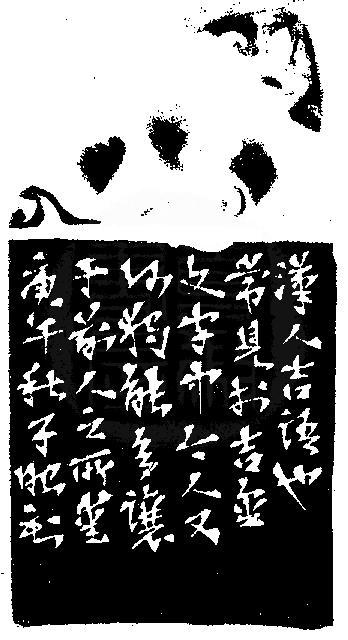 漢人吉語也
常見於吉金
文字中今人又
何獨能多讓
于前人之所
庚午秋子昭刻